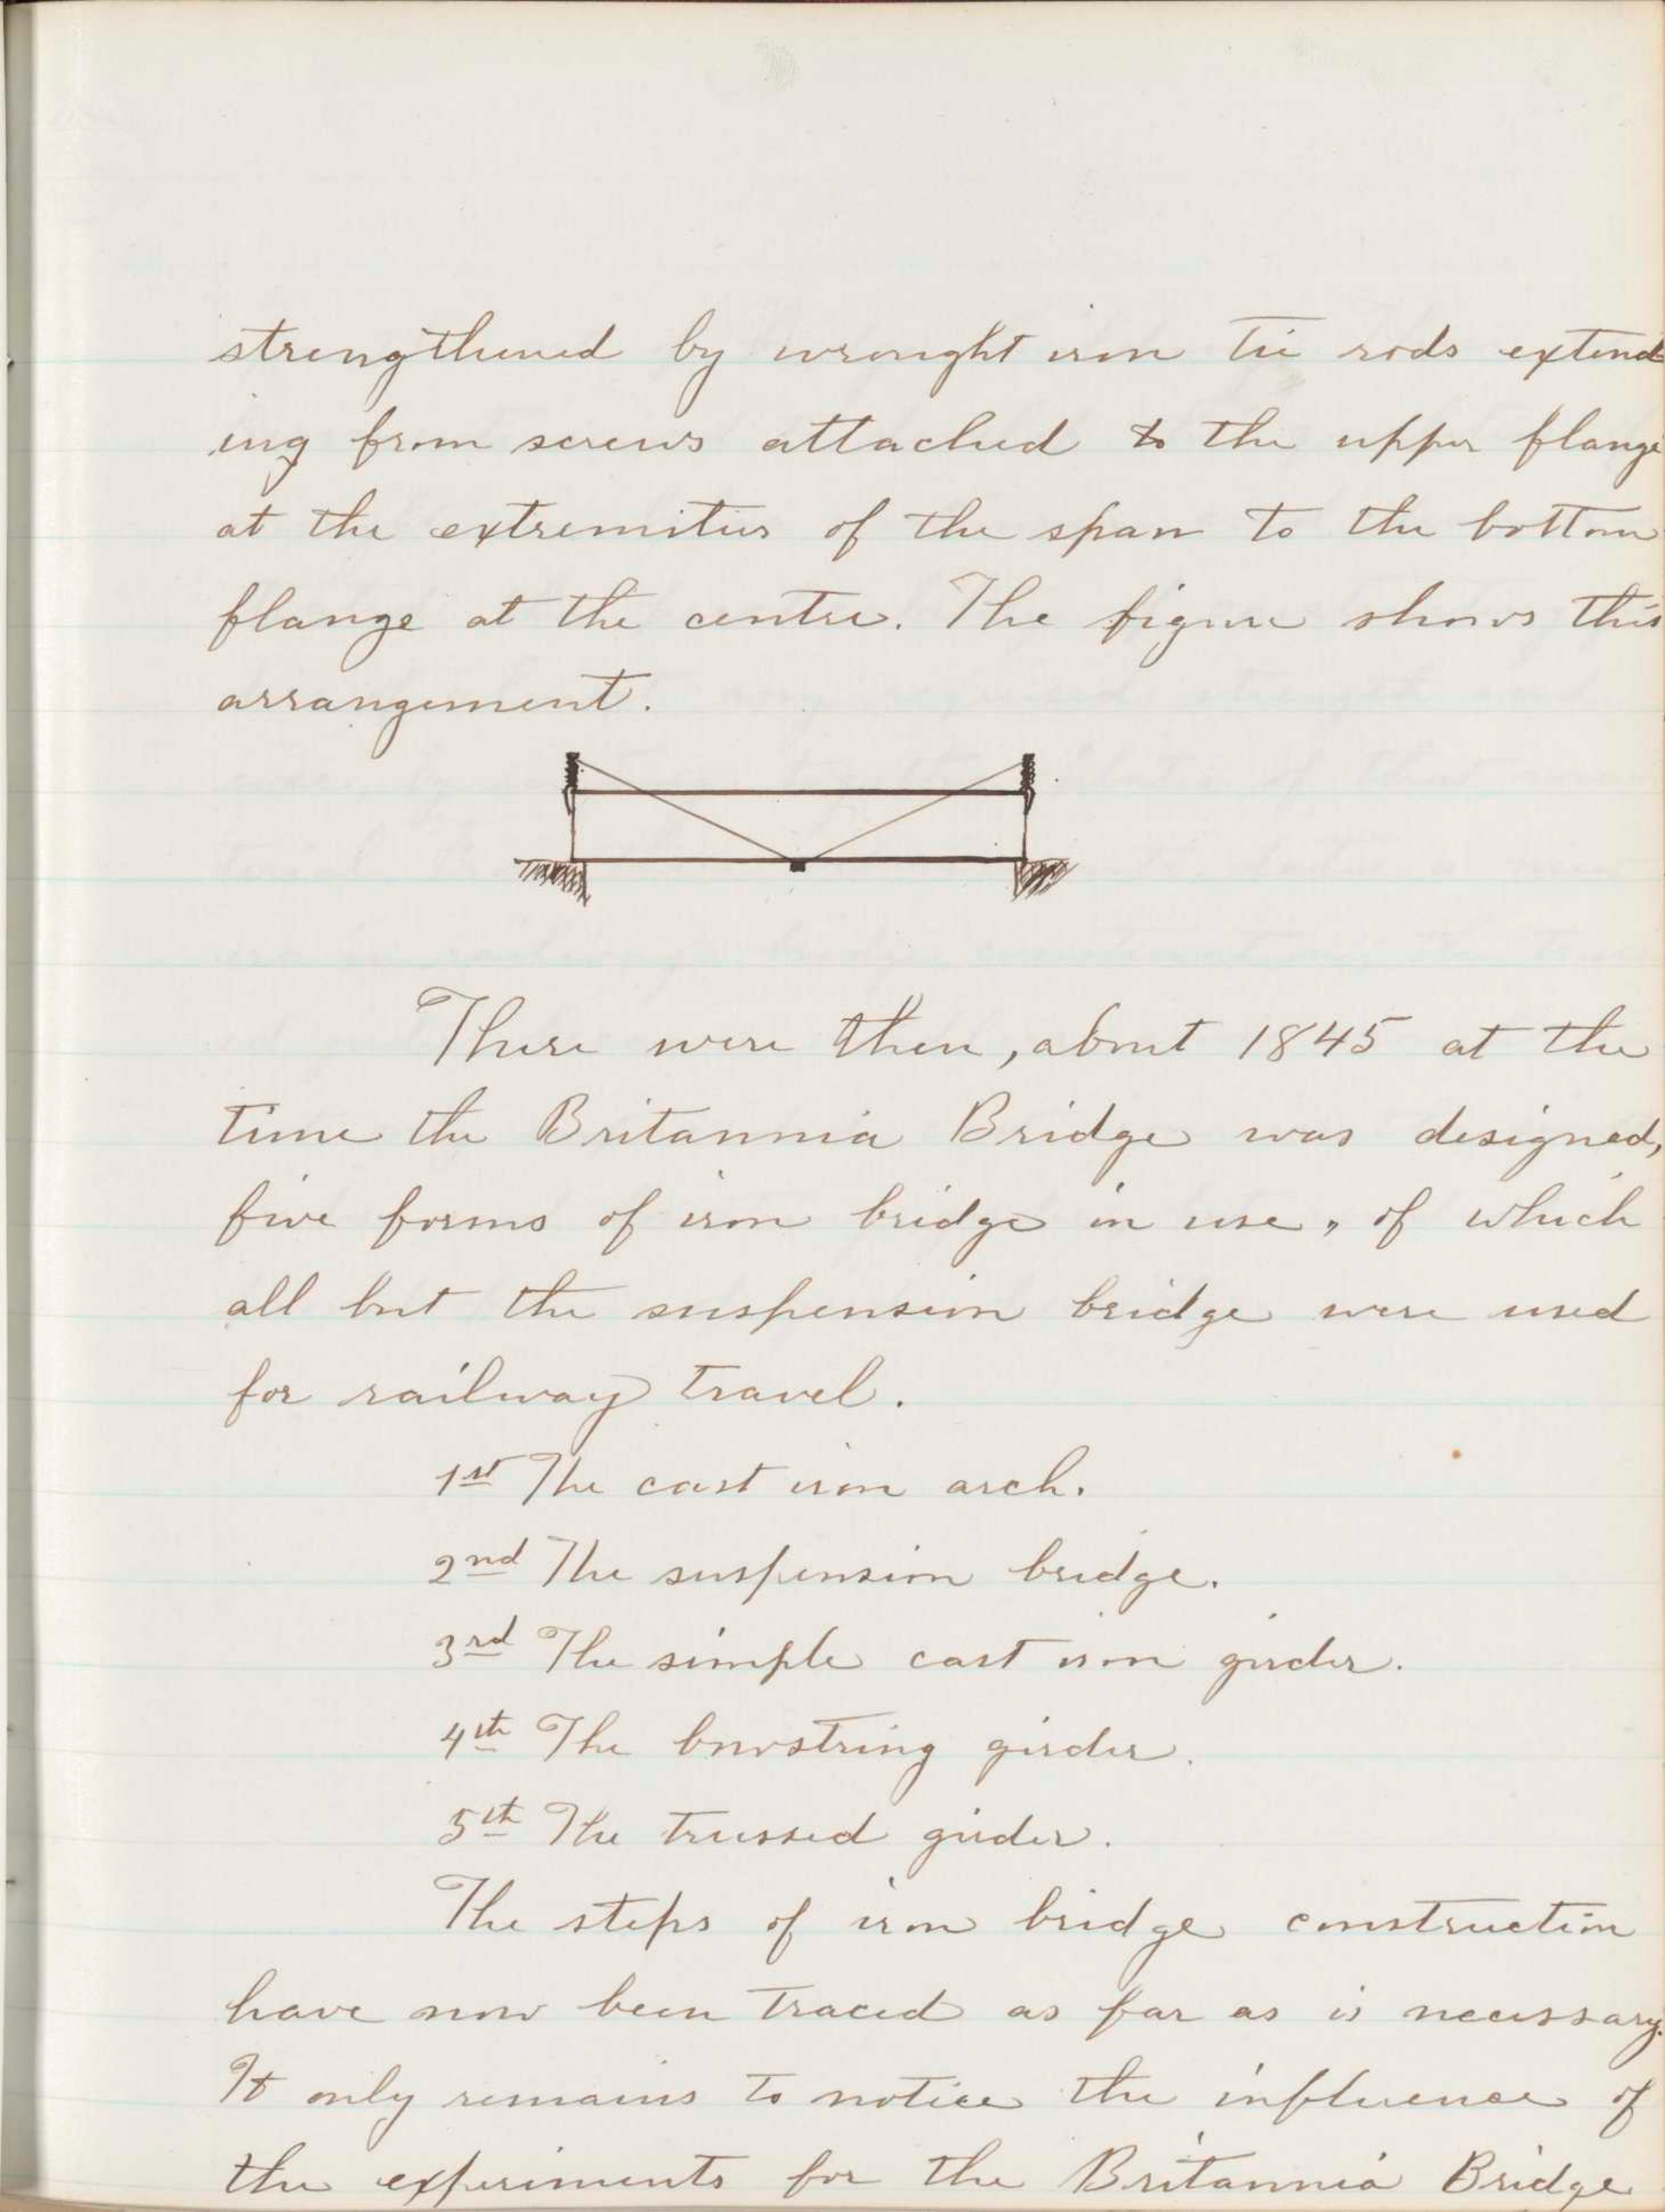 strengthened by wrought iron tie rods extend
ing from screws attached to the upper flange
at the extremities of the span to the bottom
flange at the centre. The figure shows this
arrangement.
There were then, about 1845 at the
time the Britannia Bridge was designed,
five forms of iron bridge in use, of which
all but the suspension bridge were used
for railway travel.
1st The cast iron arch.
2nd The suspension bridge.
3rd The simple cast iron girder.
4th The bowstring girder.
5th The trussed girder.
The steps of iron bridge construction
have now been traced as far as is necessary.
It only remains to notice the influence of
the experiments for the Britannia Bridge